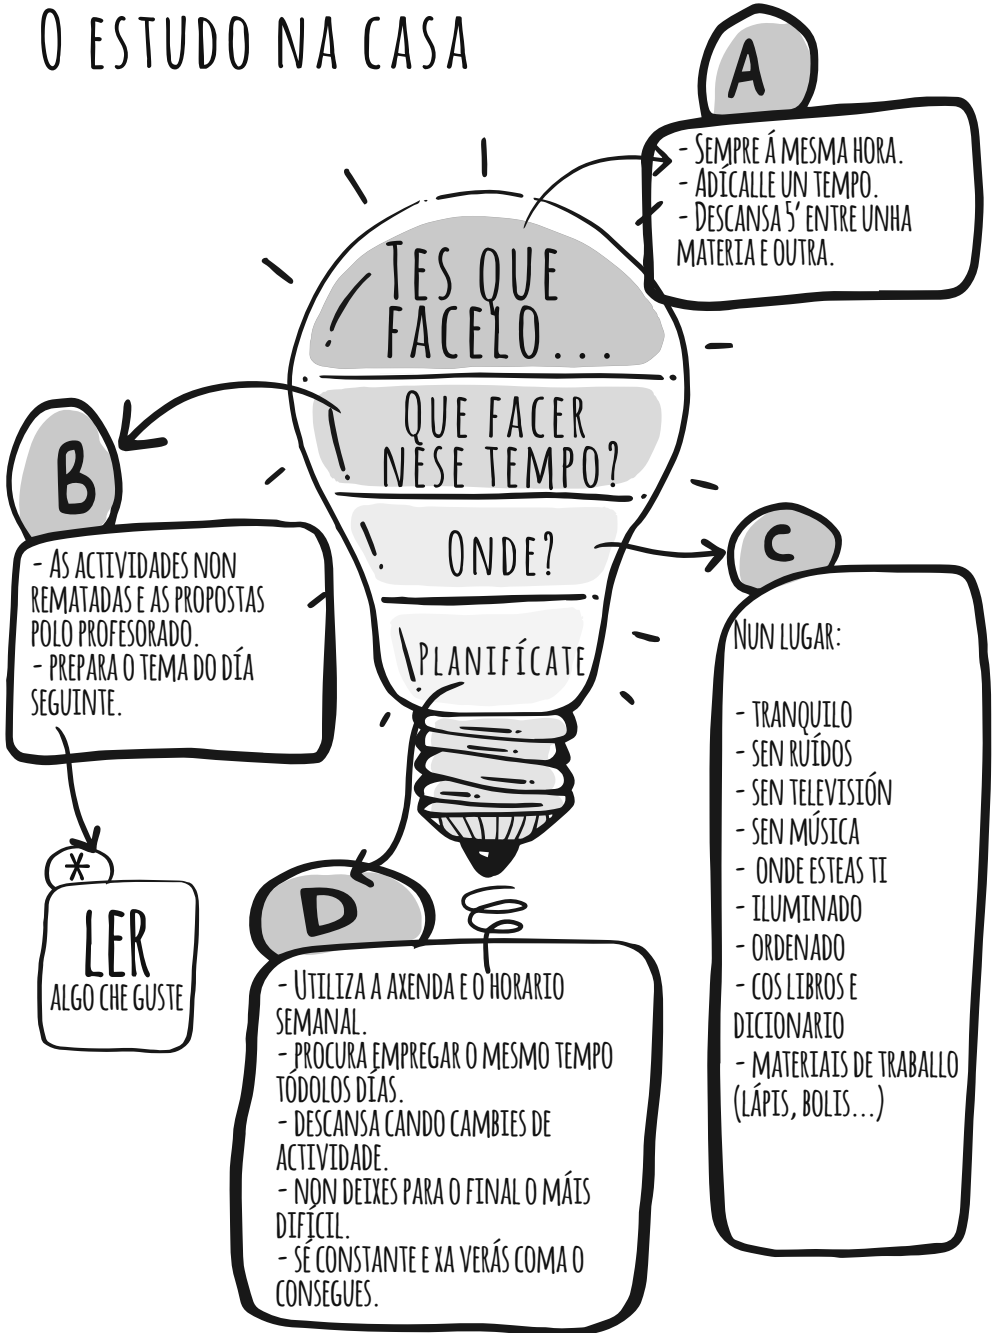 O ESTUDO NA CASA
A
- SEMPRE Á MESMA HORA.
- ADÍCALLE UN TEMPO.
- DESCANSA 5' ENTRE UNHA
MATERIA E OUTRA.
TES QUE
FACELO...
QUE FACER
NESE TEMPO?
ONDE?
PLANIFÍCATE
B
- AS ACTIVIDADES NON
REMATADAS E AS PROPOSTAS
POLO PROFESORADO.
- PREPARA O TEMA DO DÍA
SEGUINTE.
*
LER
ALGO CHE GUSTE
C
NUN LUGAR:
- TRANQUILO
- SEN RUÍDOS
- SEN TELEVISIÓN
- SEN MÚSICA
- ONDE ESTEAS TI
- ILUMINADO
- ORDENADO
- COS LIBROS E
DICIONARIO
- MATERIAIS DE TRABALLO
(LÁPIS, BOLIS...)
D
- UTILIZA A AXENDA E O HORARIO
SEMANAL.
- PROCURA EMPREGAR O MESMO TEMPO
TÓDOLOS DÍAS.
- DESCANSA CANDO CAMBIES DE
ACTIVIDADE.
- NON DEIXES PARA O FINAL O MÁIS
DIFÍCIL.
- SÉ CONSTANTE E XA VERÁS COMA O
CONSEGUES.